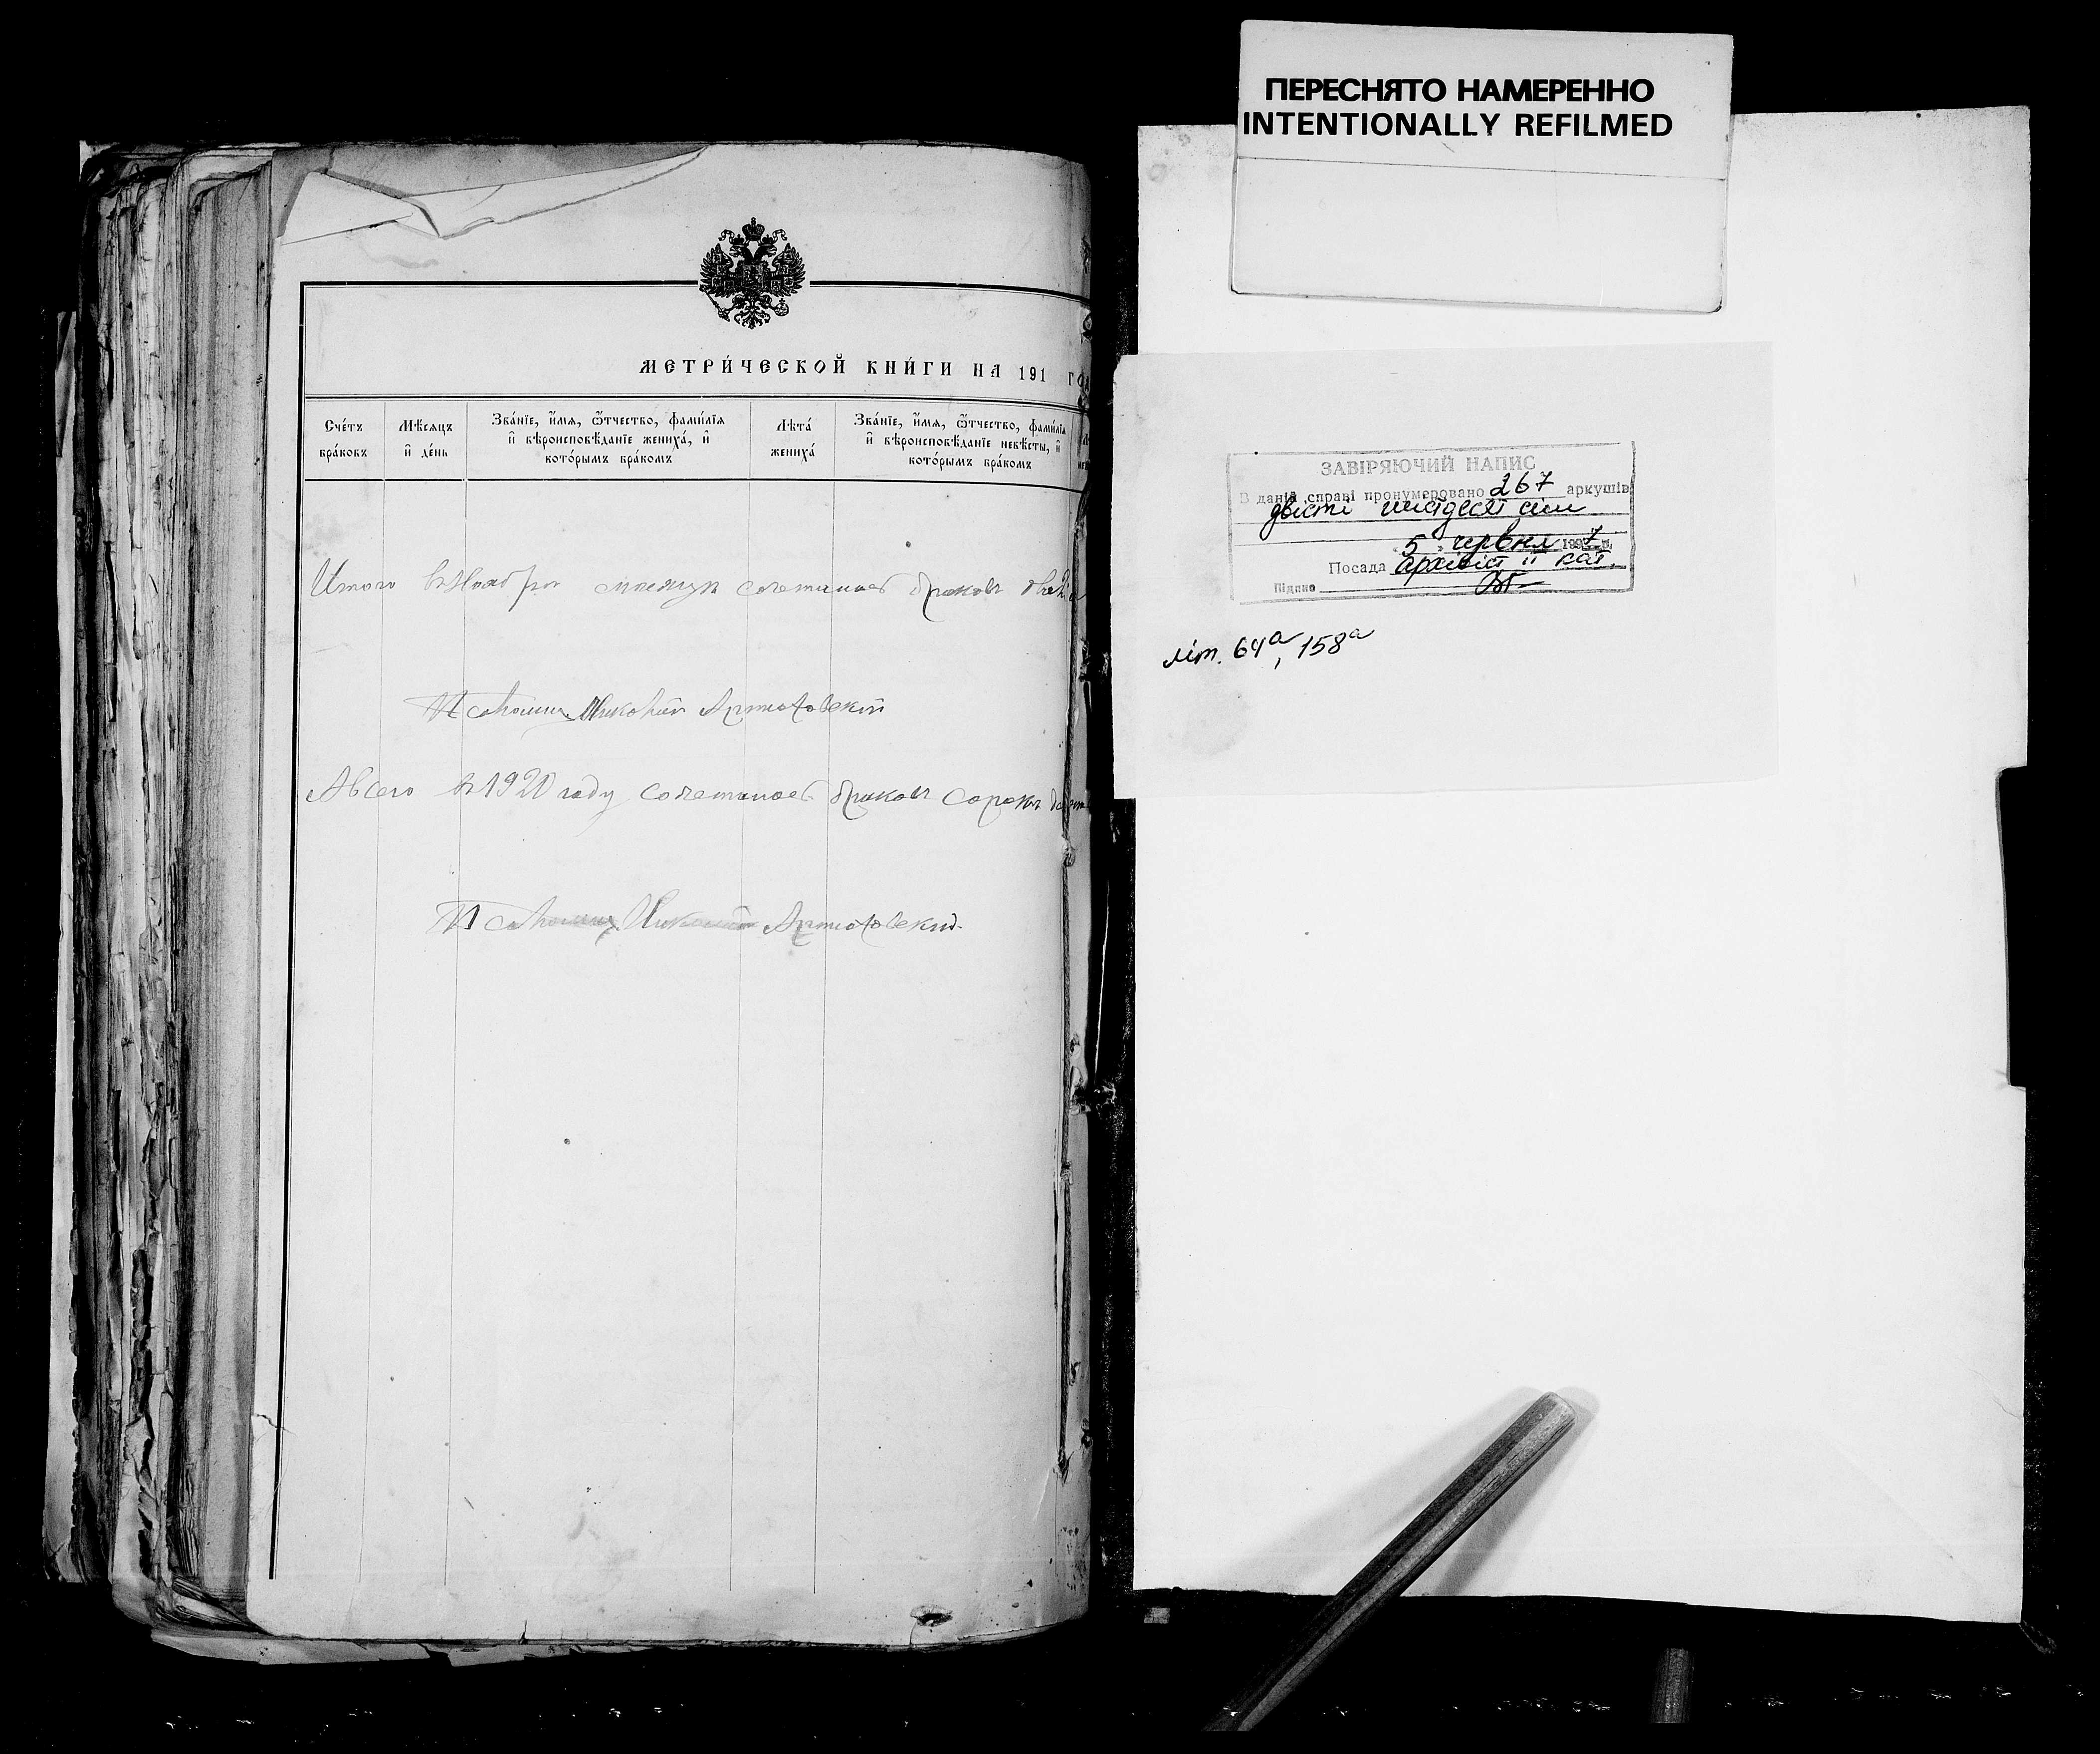 МЕТРИ́ЧЕСКОЙ КНИ́ГИ НА 191
Сче́тъ бра́ковъ
Мѣ́сяцъ и҆ де́нь
Зва́нїе, и҆́мя, ѻ҆́тчество, фами́лїя
и҆ вѣроисповѣ́данїе жениха́, и҆
кото́рымъ бра́комъ
Лѣта́ жениха́
Зва́нїе, и҆́мя, ѻ҆́тчество, фами́лїя
и҆ вѣроисповѣ́данїе невѣ́сты, и҆
кото́рымъ бра́комъ
Итого въ Ноябрѣ мѣсяцѣ сочеталось браковъ
Псаломщ. Николай Артюховскій
А всего въ 1920 году сочеталось браковъ сорокъ
Псаломщ. Николай Артюховскій.
ПЕРЕСНЯТО НАМЕРЕННО
INTENTIONALLY REFILMED
ЗАВІРЯЮЧИЙ НАПИС
В даній справі пронумеровано 267 аркушів
двісті шістдесят сім
5 червня 1997 р.
Посада архівіст II кат.
Підпис
літ. 64а, 158а